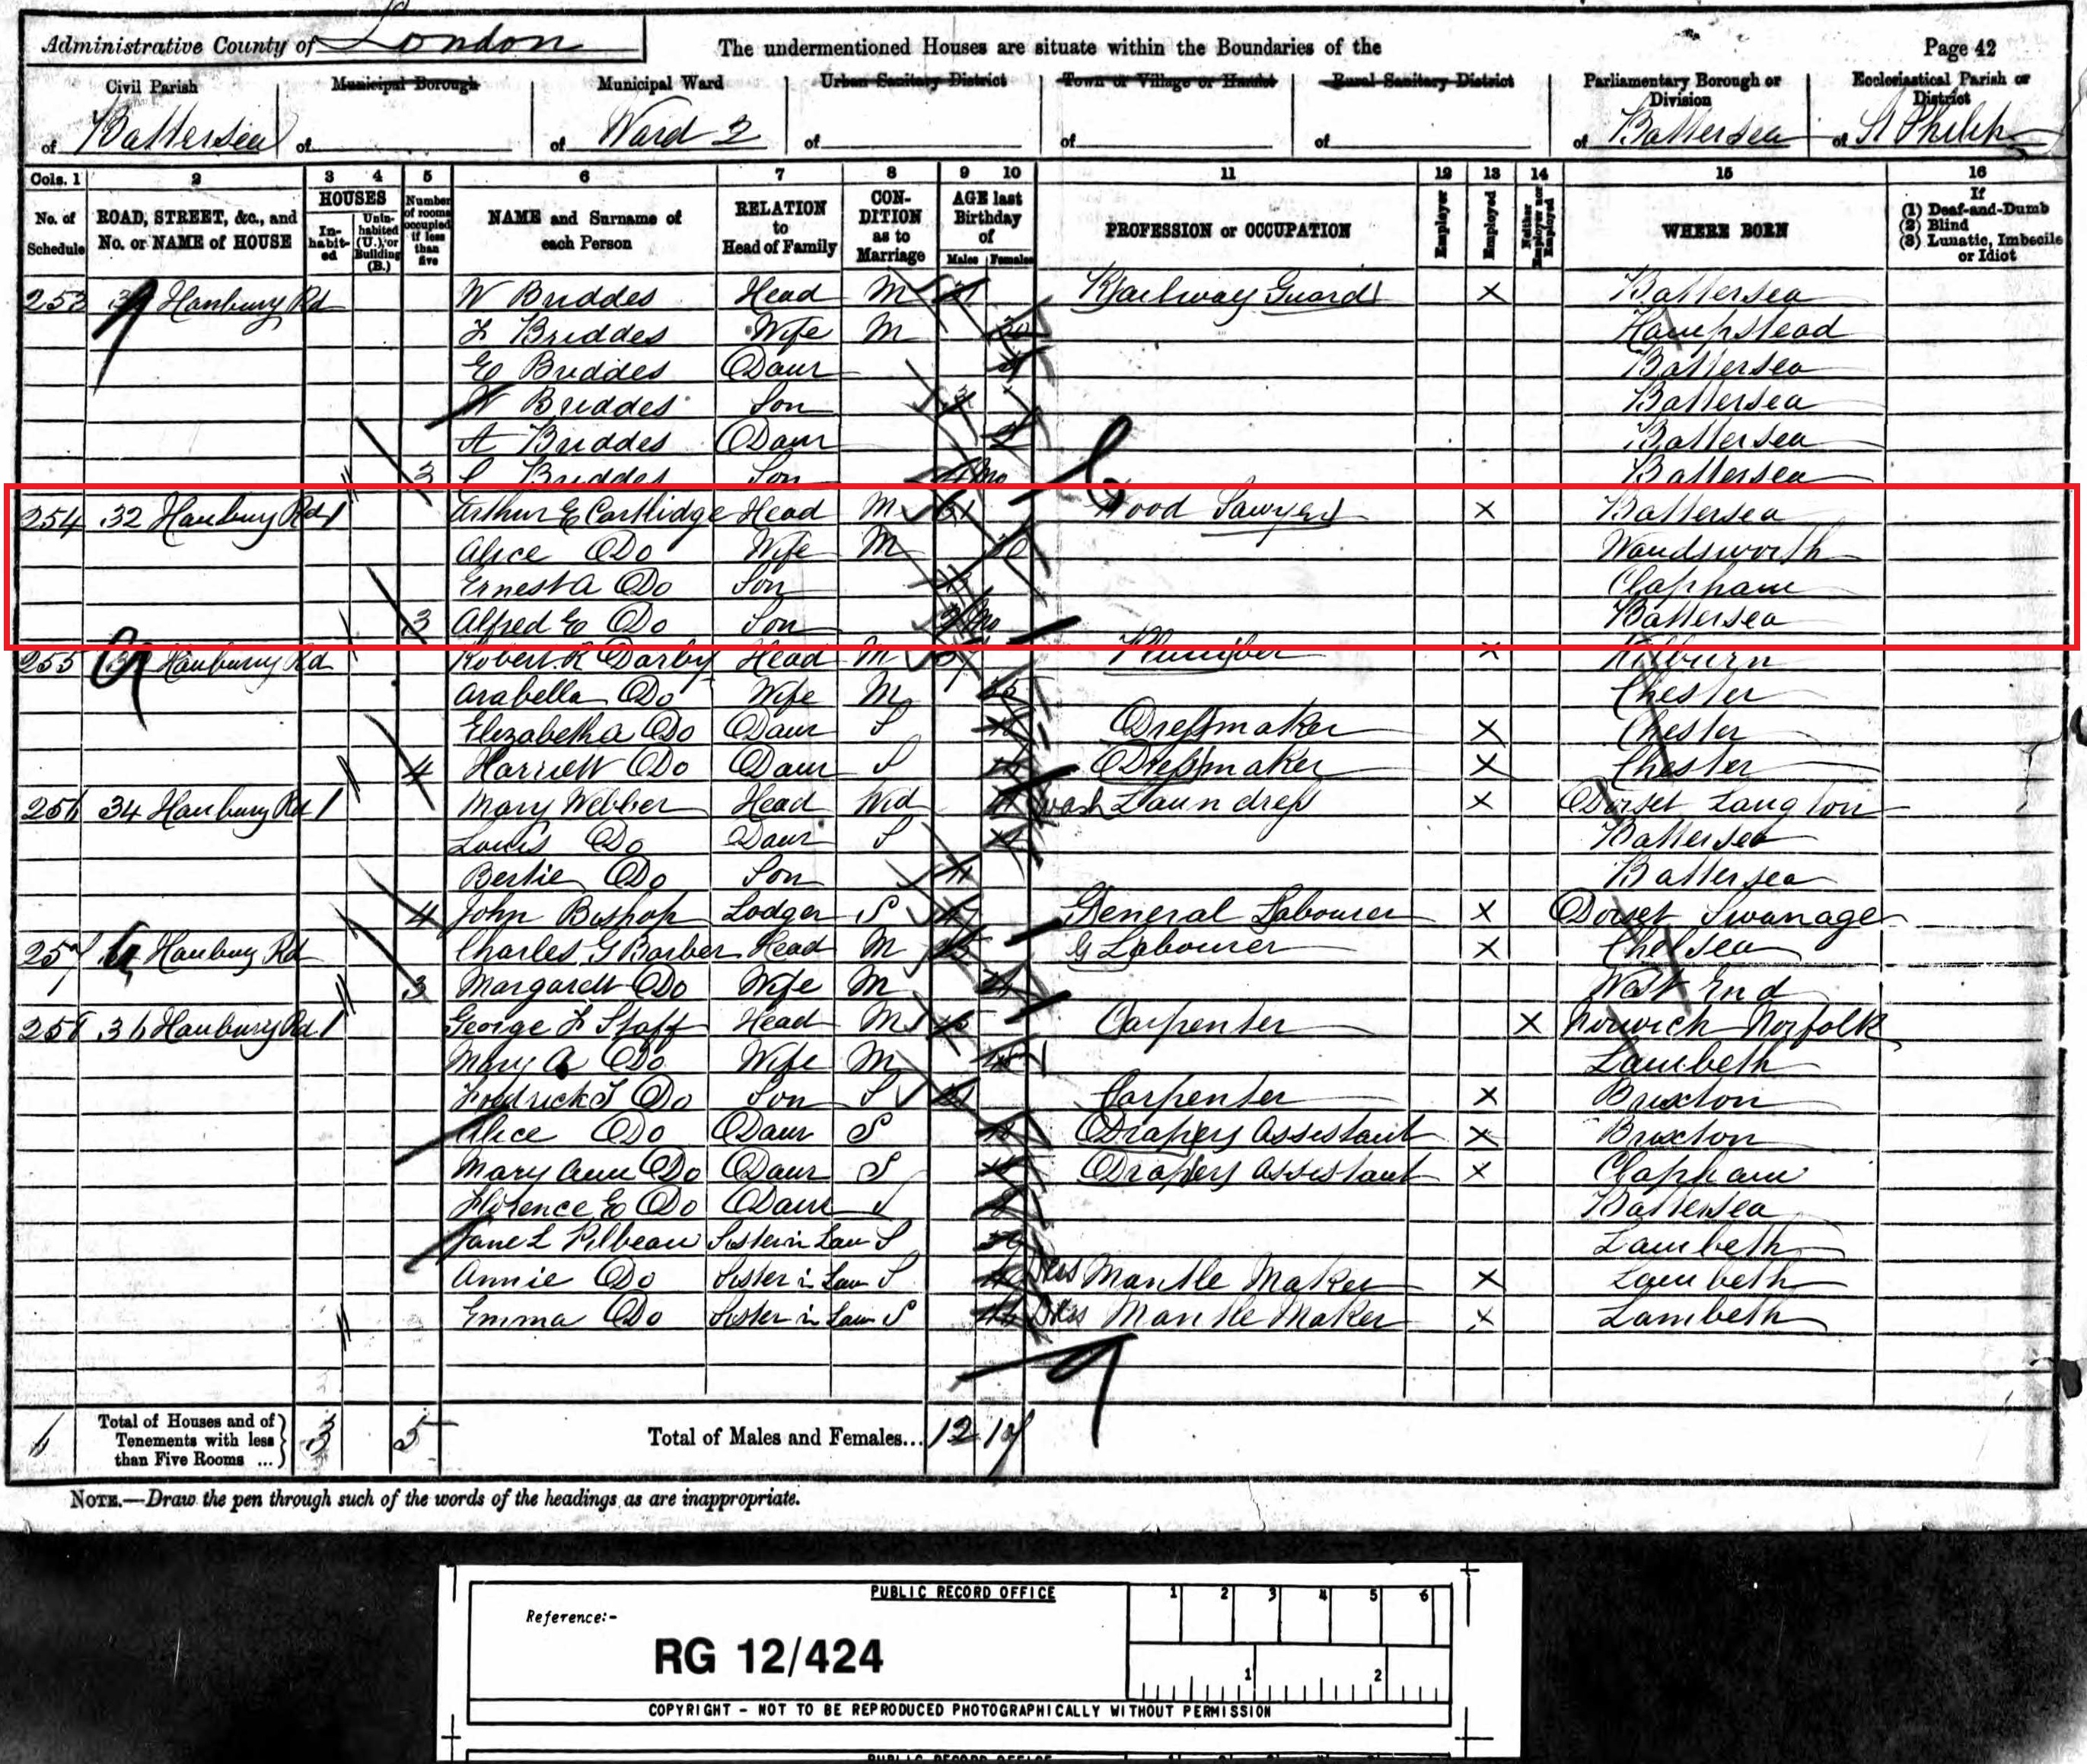 Administrative County of London
The undermentioned Houses are situate within the Boundaries of the
Page 42
Civil Parish
Municipal Borough
Municipal Ward
Urban Sanitary District
Town or Village or Hamlet
Rural Sanitary District
Parliamentary Borough or Division
Ecclesiastical Parish or District
of Battersea
of
of Ward 2
of
of
of
of Battersea
of St Philip
Cols. 1 2 3 4 5 6 7 8 9 10 11 12 13 14 15 16
No. of Schedule
ROAD, STREET, &c., and No. or NAME of HOUSE
HOUSES
In-habit-ed
Unin-habited (U.), or Building (B.)
Number of rooms occupied if less than five
NAME and Surname of each Person
RELATION to Head of Family
CON-DITION as to Marriage
AGE last Birthday of
Males Females
PROFESSION or OCCUPATION
Employer
Employed
Neither Employer nor Employed
WHERE BORN
If
(1) Deaf-and-Dumb
(2) Blind
(3) Lunatic, Imbecile or Idiot
253 Hanbury Rd W Briddes Head M Railway Guard X Battersea
Briddes Wife M 30 Hampstead
E Briddes Daur Battersea
W Briddes Son 3 Battersea
A Briddes Daur Battersea
3 Briddes Son mo Battersea
254 32 Hanbury Rd 1 Arthur E Cartlidge Head M 31 Wood Sawyer X Battersea
Alice Do Wife M Wandsworth
Ernest A Do Son Clapham
3 Alfred E Do Son mo Battersea
255 Hanbury Rd Robert R Darby Head M Plumber X Kilburn
Arabella Do Wife M Chester
Elizabeth A Do Daur S Dressmaker X Chester
4 Harriett Do Daur S Dressmaker X Chester
256 34 Hanbury Rd 1 Mary Webber Head Wid wash Laundress X Dorset Langton
Louis Do Daur S Battersea
Bertie Do Son Battersea
4 John Bishop Lodger S General Labourer X Dorset Swanage
257 Hanbury Rd Charles G Barber Head M G Labourer X Chelsea
3 Margarett Do Wife M West End
258 36 Hanbury Rd 1 George F Staff Head M Carpenter X Norwich Norfolk
Mary A Do Wife M Lambeth
Fredrick J Do Son S Carpenter X Brixton
Alice Do Daur S Drapery Assistant X Brixton
Mary Ann Do Daur S Drapery Assistant X Clapham
Florence E Do Daur S Battersea
Jane L Pilbeau Sister in Law S Lambeth
Annie Do Sister in Law S Mantle Maker X Lambeth
Emma Do Sister in Law S Mantle Maker X Lambeth
6 Total of Houses and of Tenements with less than Five Rooms ... 3 5 Total of Males and Females... 12 17
NOTE.—Draw the pen through such of the words of the headings as are inappropriate.
PUBLIC RECORD OFFICE
1 2 3 4 5 6
Reference:-
RG 12/424
1 2
COPYRIGHT - NOT TO BE REPRODUCED PHOTOGRAPHICALLY WITHOUT PERMISSION
PUBLIC RECORD OFFICE